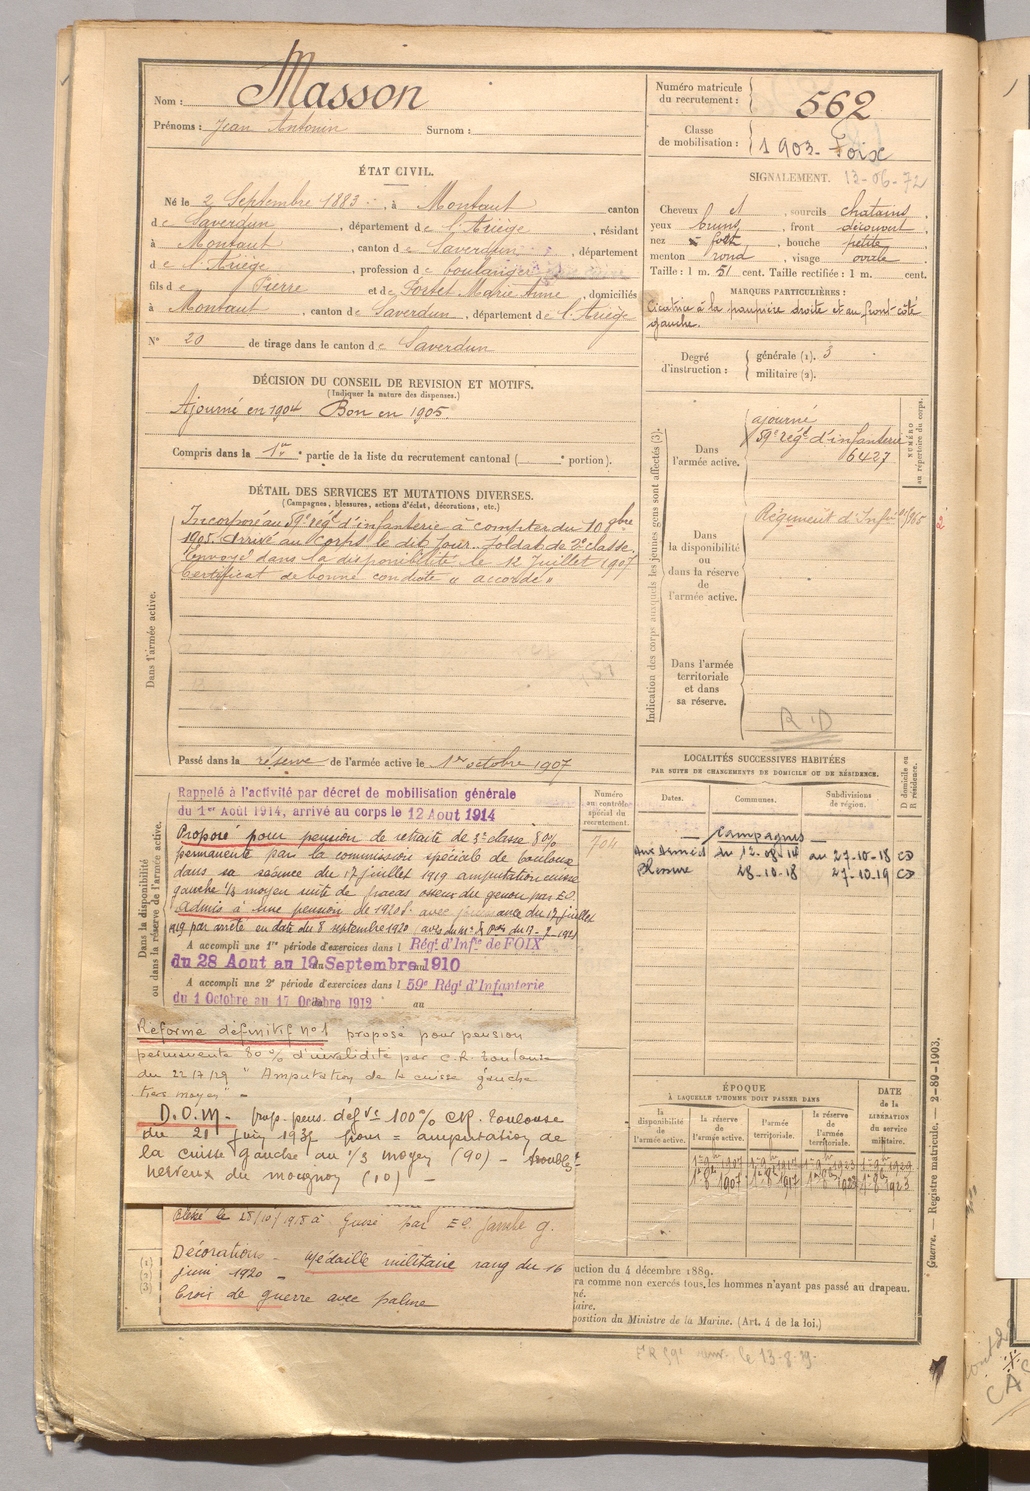 Nom : Masson
Prénoms : Jean Antonin Surnom :
Numéro matricule du recrutement : 562
Classe de mobilisation : 1903 - Foix
ÉTAT CIVIL.
Né le 2 Septembre 1883, à Montaut canton
de Saverdun, département de l'Ariège, résidant
à Montaut, canton de Saverdun, département
de l'Ariège, profession de boulanger
fils de Pierre et de Portet Marie Anne, domiciliés
à Montaut, canton de Saverdun, département de l'Ariège
N° 20 de tirage dans le canton de Saverdun
SIGNALEMENT. 13-06-72
Cheveux et, sourcils chatains,
yeux bruns, front découvert,
nez fort, bouche petite,
menton rond, visage ovale
Taille : 1 m. 51 cent. Taille rectifiée : 1 m. cent.
MARQUES PARTICULIÈRES :
Cicatrice à la paupière droite et au front côté
gauche.
Degré d'instruction : générale (1). 3
militaire (2).
DÉCISION DU CONSEIL DE REVISION ET MOTIFS.
(Indiquer la nature des dispenses.)
Ajourné en 1904 Bon en 1905.
Compris dans la 1re partie de la liste du recrutement cantonal ( e portion).
DÉTAIL DES SERVICES ET MUTATIONS DIVERSES.
(Campagnes, blessures, actions d'éclat, décorations, etc.)
Dans l'armée active.
Incorporé au 59e régt d'infanterie à compter du 10 9bre
1905. Arrivé au Corps le dit jour. Soldat de 2e classe.
Envoyé dans la disponibilité le 12 Juillet 1907
Certificat de bonne conduite "accordé"
Passé dans la réserve de l'armée active le 1er octobre 1907
Indication des corps auxquels les jeunes gens sont affectés (3).
NUMÉRO
au répertoire du corps.
Dans
l'armée active.
ajourné
59e régt d'infanterie
6427
Dans
la disponibilité
ou
dans la réserve
de
l'armée active.
Régiment d'Infie
Dans l'armée
territoriale
et dans
sa réserve.
R D
Dans la disponibilité
ou dans la réserve de l'armée active.
Rappelé à l'activité par décret de mobilisation générale
du 1er Août 1914, arrivé au corps le 12 Aout 1914
Proposé pour pension de retraite de 5e classe 80%
permanente par la commission spéciale de Toulouse
dans sa séance du 17 juillet 1919 amputation cuisse
gauche 1/3 moyen suite de fracas osseux du genou par E.O.
Admis à une pension de 1920f. avec jouissance du 17 juillet
1919 par arrêté en date du 8 septembre 1920
A accompli une 1re période d'exercices dans l Régt d'Infie de FOIX
du 28 Aout au 19 Septembre 1910
A accompli une 2e période d'exercices dans l 59e Régt d'Infanterie
du 1 Octobre au 17 Octobre 1912 au
Réformé définitif no1 proposé pour pension
permanente 80% d'invalidité par C.R. Toulouse
du 22/7/29 "Amputation de la cuisse gauche
tiers moyen"
D.O.M - prop. pens. défve 100% CR. Toulouse
du 21 juin 1935 pour = amputation de
la cuisse gauche au 1/3 moyen (90) - troubles
nerveux du moignon (10) -
Blessé le 28/10/1918 à Guise par E.O. jambe g.
Décorations - Médaille militaire rang du 16
juin 1920 -
Croix de guerre avec palme
Numéro
au contrôle
spécial du
recrutement.
704
LOCALITÉS SUCCESSIVES HABITÉES
PAR SUITE DE CHANGEMENTS DE DOMICILE OU DE RÉSIDENCE.
D domicile ou
R résidence.
Dates. Communes. Subdivisions
de région.
Campagnes
Aux Armées du 12-08-14 au 27-10-18 CD
Blessure 28-10-18 27-10-19 CD
ÉPOQUE
À LAQUELLE L'HOMME DOIT PASSER DANS
la
disponibilité
de
l'armée active.
la réserve
de
l'armée active.
l'armée
territoriale.
la réserve
de
l'armée
territoriale.
DATE
de la
LIBÉRATION
du service
militaire.
1er 8bre 1907 1er 8bre 1917 1er 8bre 1923
uction du 4 décembre 1889.
ra comme non exercés tous les hommes n'ayant pas passé au drapeau.
né.
iaire.
position du Ministre de la Marine. (Art. 4 de la loi.)
(1)
(2)
(3)
Guerre. — Registre matricule. — 2-89-1903.
le 13-8-29